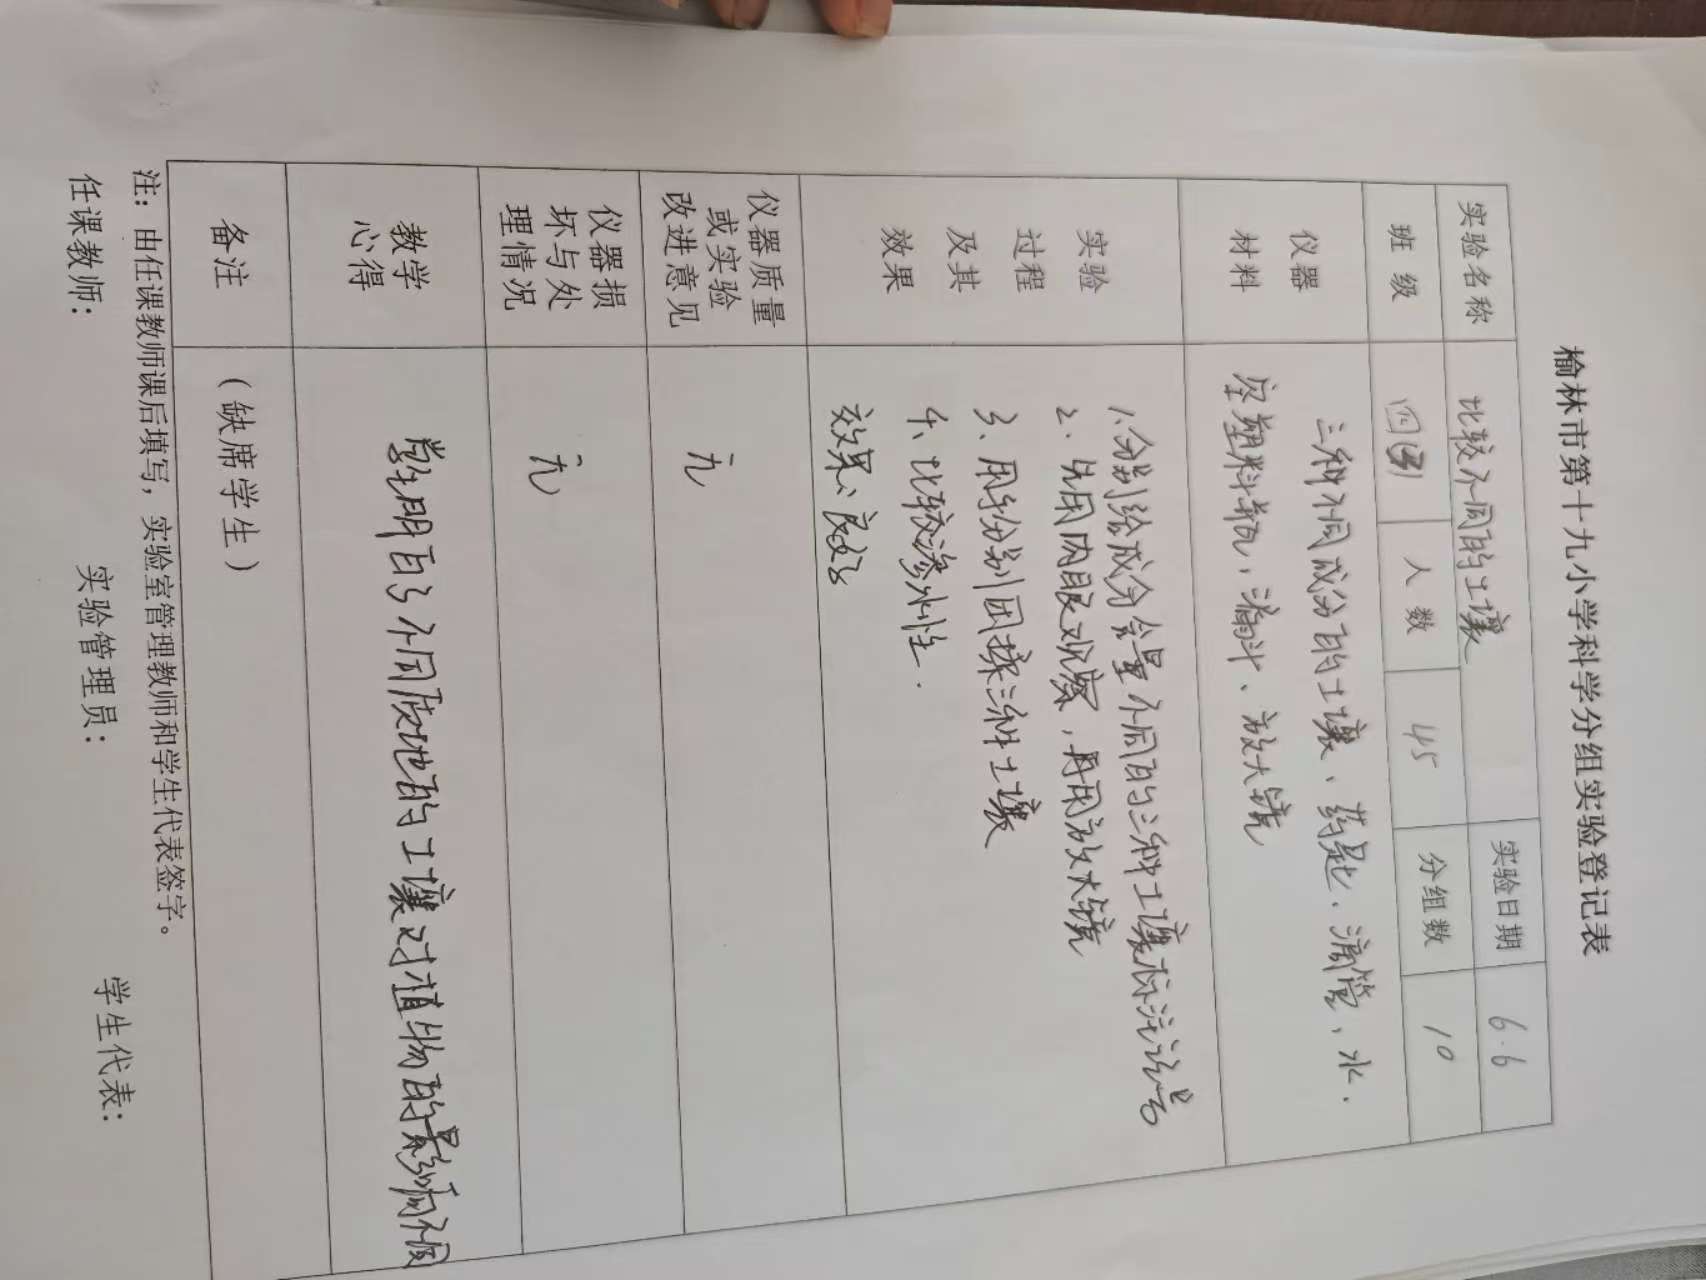 榆林市第十九小学科学分组实验登记表
实验名称 比较不同的土壤 实验日期 6.6
班级 四(3) 人数 45 分组数 10
仪器材料
三种不同成分的土壤、药匙、滴管、水.
空塑料瓶,漏斗、放大镜
实验过程及其效果
1.分别给成分含量不同的三种土壤标注记号
2.先用肉眼观察,再用放大镜
3.用手分别团揉三种土壤
4、比较渗水性.
效果:良好
仪器质量或实验改进意见 无
仪器损坏与处理情况 无
教学心得 学生明白了不同质地的土壤对植物的影响不同
备注 (缺席学生)
注:由任课教师课后填写,实验室管理教师和学生代表签字。
任课教师: 实验管理员: 学生代表: